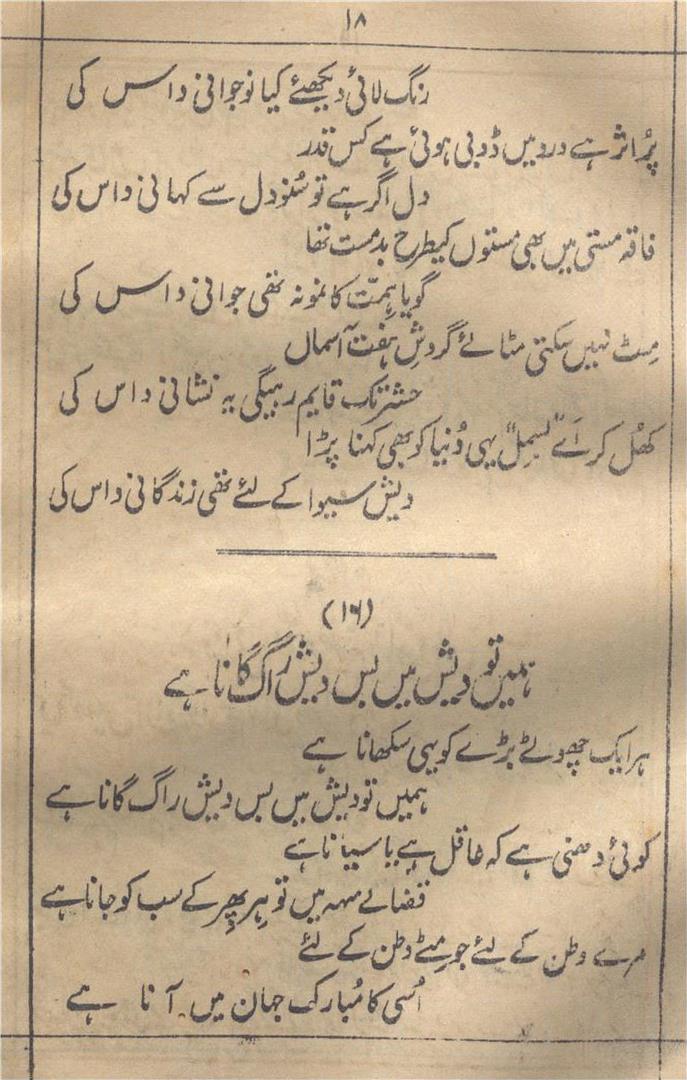 ۱۸
رنگ لائی دیکھئے کیا نوجوانی داس کی
پُر اثر ہے درد میں ڈوبی ہوئی ہے کس قدر
دل اگر ہے تو سُنو دل سے کہانی داس کی
فاقہ مستی میں بھی مستوں کیطرح بدمست تھا
گویا ہمّت کا نمونہ تھی جوانی داس کی
مِٹ نہیں سکتی مٹائے گردشِ ہفت آسماں
حشر تک قایم رہیگی یہ نشانی داس کی
کھُل کر اَے "بسمل" یہی دُنیا کو بھی کہنا پڑا
دیش سیوا کے لئے تھی زندگانی داس کی
(۱۶)
ہمیں تو دیش میں بس دیش راگ گانا ہے
ہر ایک چھوٹے بڑے کو یہی سکھانا ہے
ہمیں تو دیش میں بس دیش راگ گانا ہے
کوئی دھنی ہے کہ غافل ہے یا سیانا ہے
قضا کے منہہ میں تو ہِر پھِر کے سب کو جانا ہے
مرے وطن کے لئے جو مٹے وطن کے لئے
اُسی کا مُبارک جہان میں آنا ہے